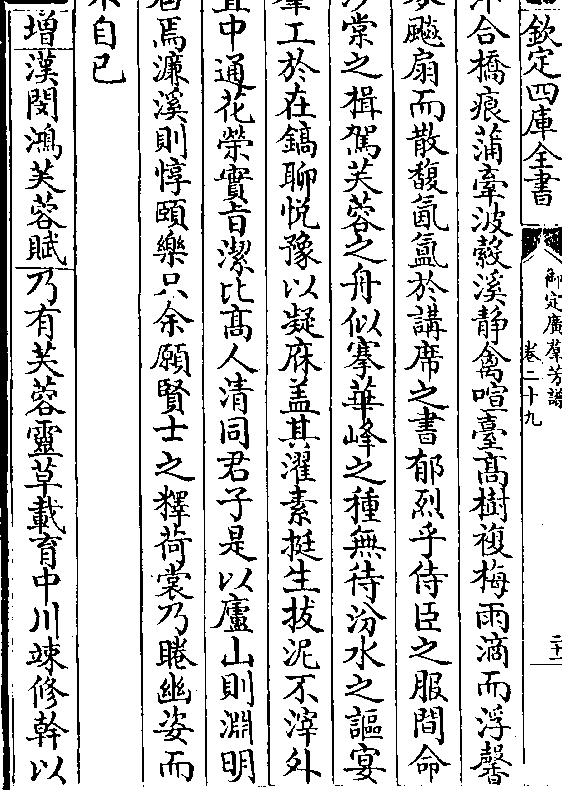 欽定四庫全書
御定廣羣芳譜
卷二十九
二十二
合橋痕蒲牽波縠溪静禽喧臺髙樹複梅雨滴而浮馨
飈扇而散馥氤氲於講席之書郁烈乎侍臣之服間命
棠之楫駕芙蓉之舟似搴華峰之種無待汾水之謳宴
工於在鎬聊悦豫以凝庥盖其濯素挺生拔泥不滓外
直中通花榮實旨潔比髙人清同君子是以廬山則淵明
焉濂溪則惇頤樂只余願賢士之釋荷裳乃睠幽姿而
自已
增漢閔鴻芙蓉賦乃有芙蓉靈草載育中川竦修幹以